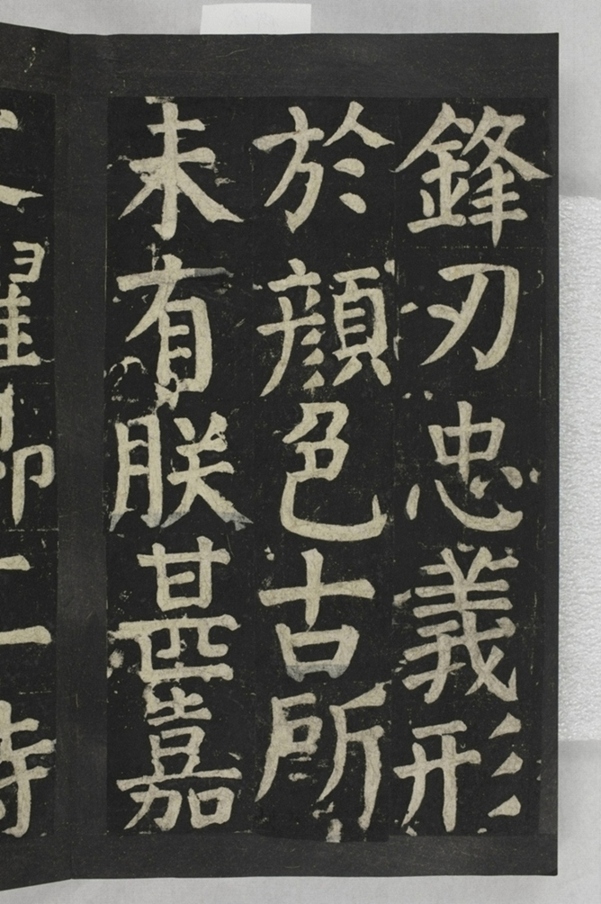 鋒刃忠義形
於顔色古所
未有朕甚嘉